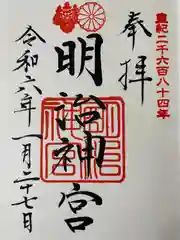 皇紀二千六百八十四年
奉拝
明治神宮
令和六年一月二十七日